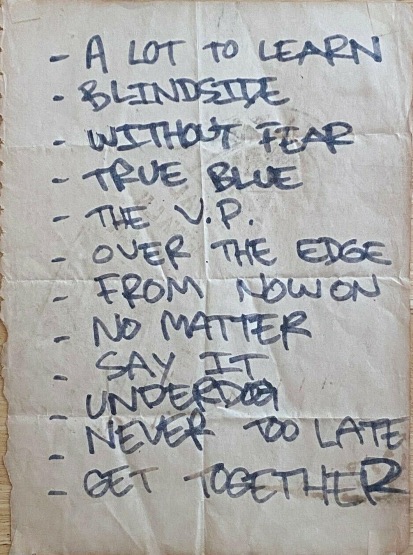 - A LOT TO LEARN
- BLINDSIDE
- WITHOUT FEAR
- TRUE BLUE
- THE V.P.
- OVER THE EDGE
- FROM NOW ON
- NO MATTER
- SAY IT
- UNDERDOG
- NEVER TOO LATE
- GET TOGETHER